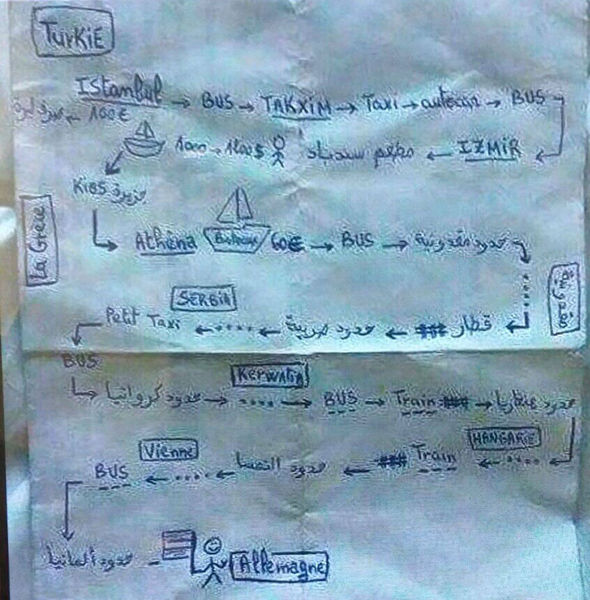 TURKIE
IStanbul → BUS → TAKXIM → Taxi → autocar → BUS
100€
IZMIR ← مطعم سندباد 1000 → 1200$
جزيرة KiOS
La Grèce
Athéna Bateau 60€ → BUS → حدود مقدونية
مقدونية
SERBIA
قطار ← حدود صربية ← .... ← Petit Taxi
BUS
KERWATIA
حدود كرواتيا → .... → BUS → Train → حدود هنغاريا
HANGARIE
.... ← Train ← حدود النمسا ← .... ← BUS
Vienne
حدود ألمانيا
Allemagne